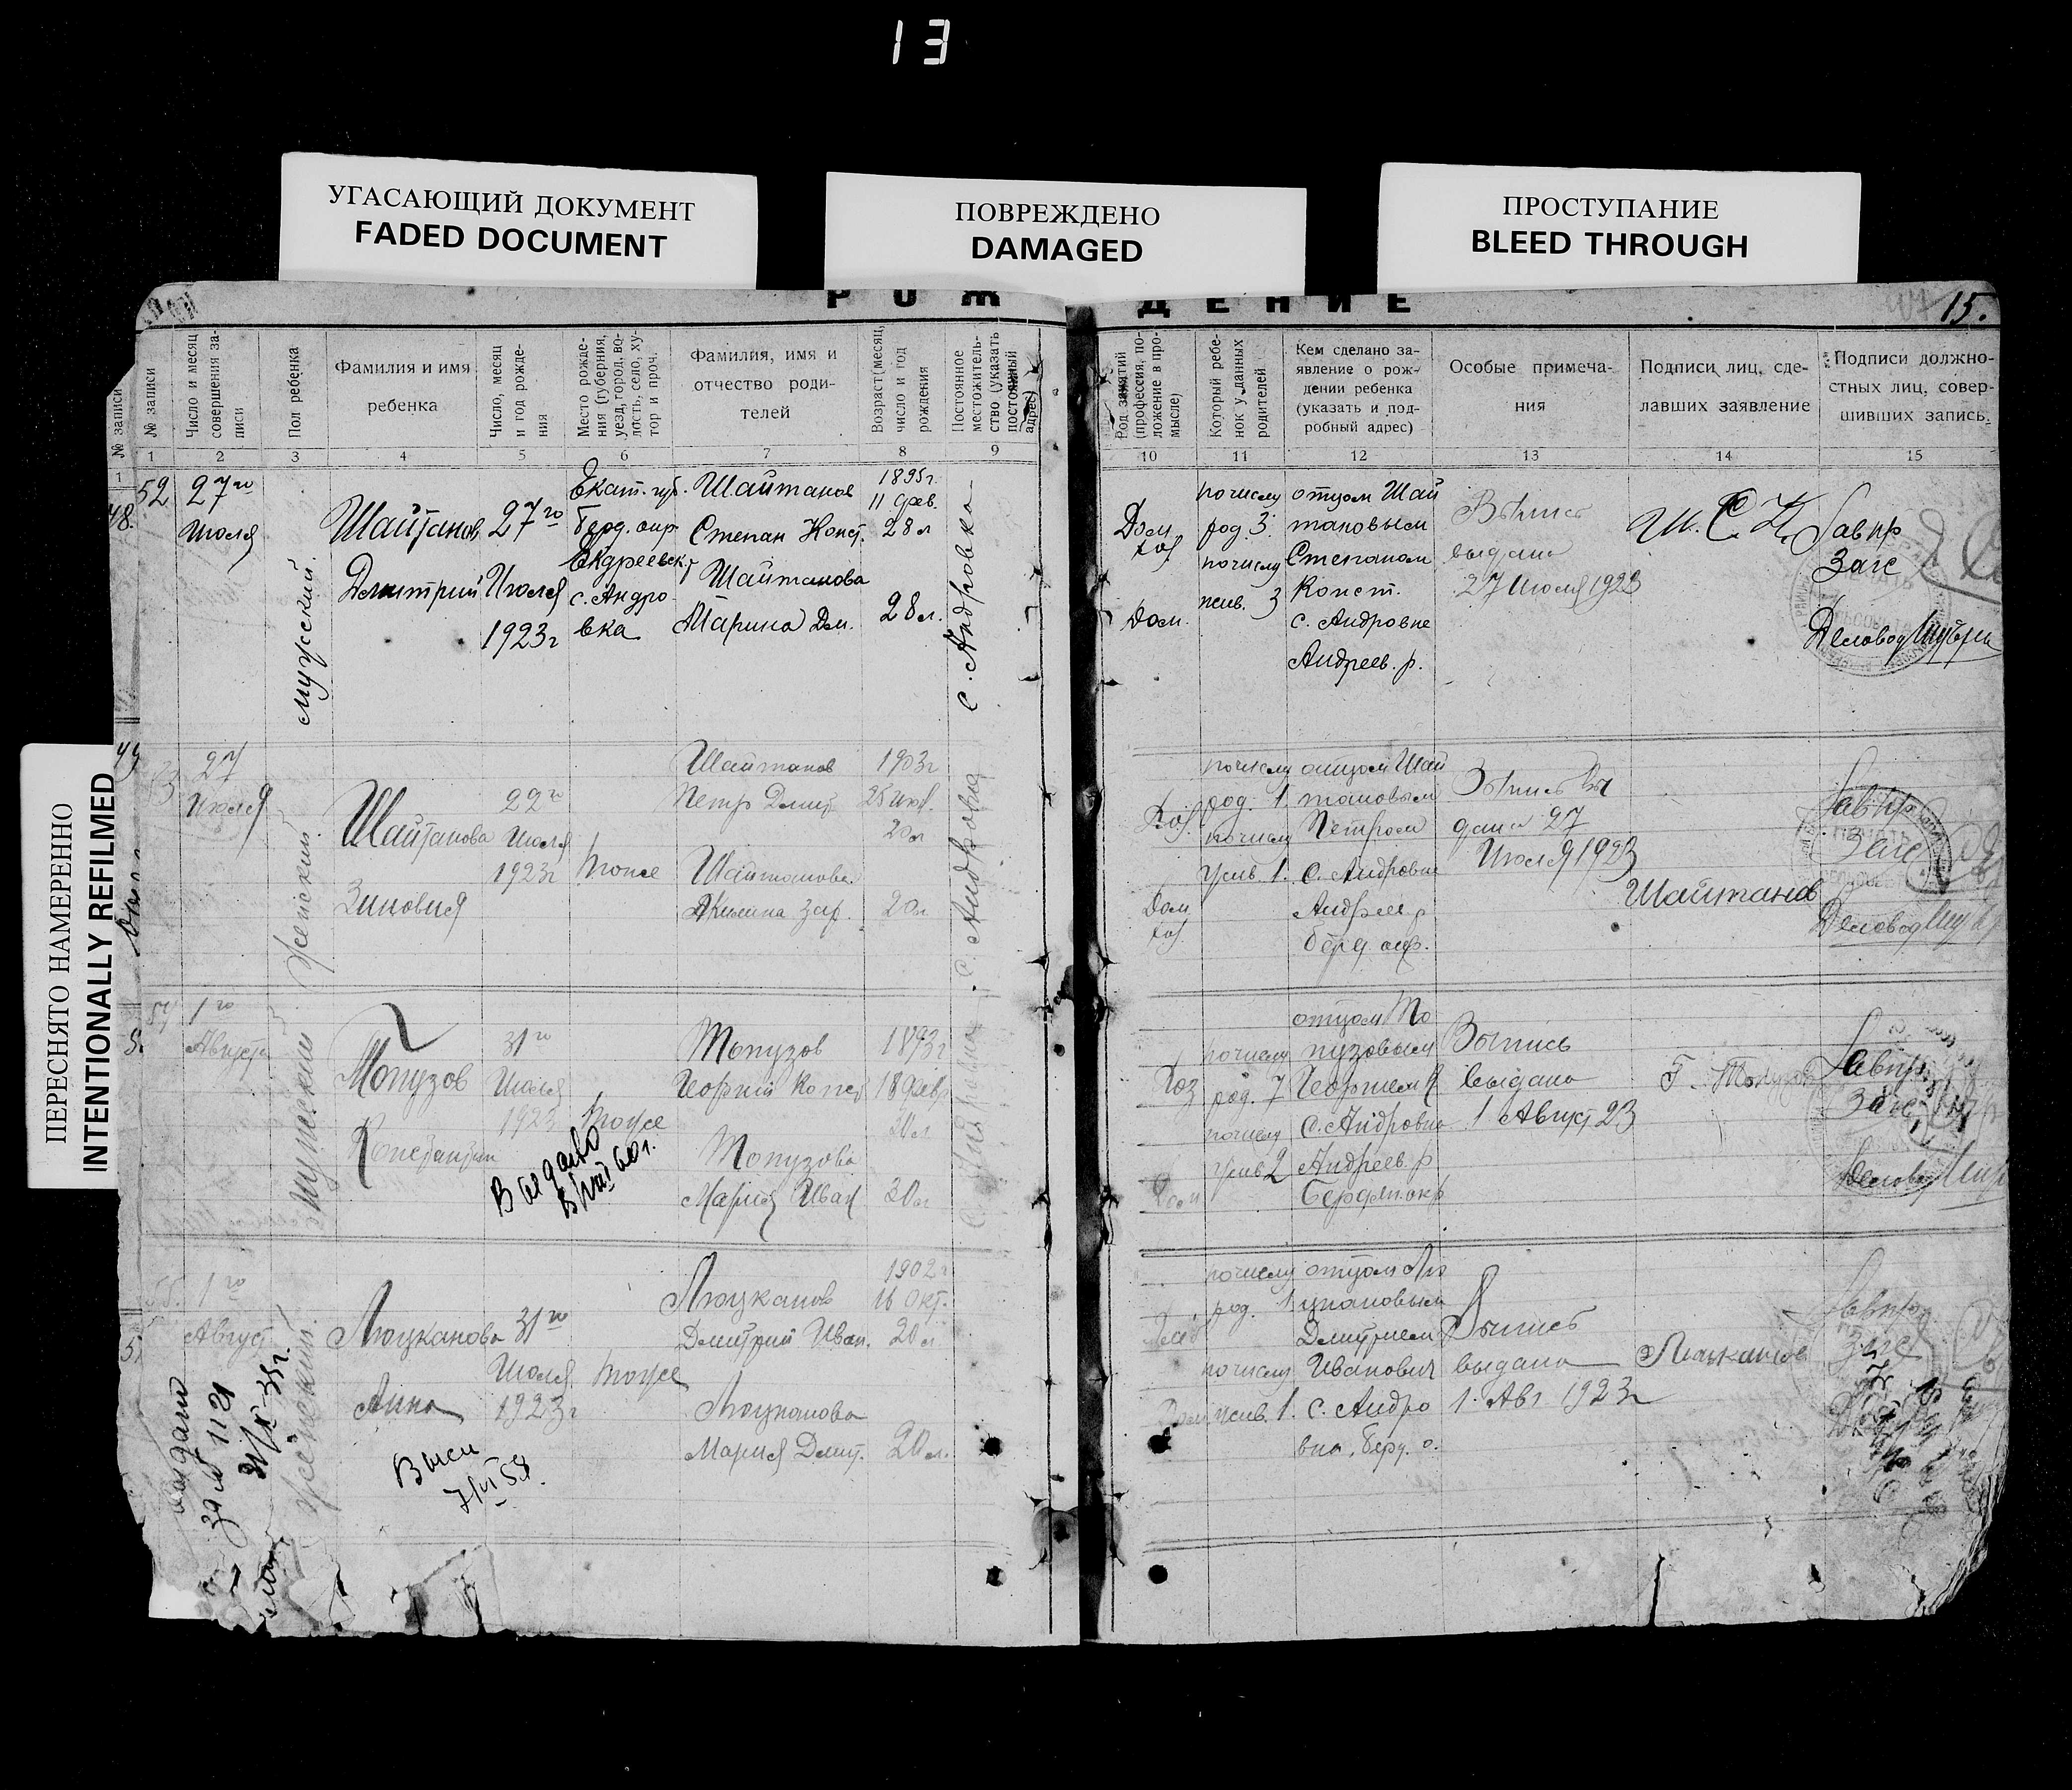 13
УГАСАЮЩИЙ ДОКУМЕНТ
FADED DOCUMENT
ПОВРЕЖДЕНО
DAMAGED
ПРОСТУПАНИЕ
BLEED THROUGH
ПЕРЕСНЯТО НАМЕРЕННО
INTENTIONALLY REFILMED
РОЖДЕНИЕ
15.
№ записи
№ записи
Число и месяц
совершения за-
писи
Пол ребенка
Фамилия и имя
ребенка
Число, месяц
и год рожде-
ния
Место рожде-
ния (губерния,
уезд, город, во-
лость, село, ху-
тор и проч.
Фамилия, имя и
отчество роди-
телей
Возраст (месяц,
число и год
рождения
Постоянное
местожитель-
ство (указать
постоянный
адрес)
Род занятий
(профессия, по-
ложение в про-
мысле)
Который ребе-
нок у данных
родителей
Кем сделано за-
явление о рож-
дении ребенка
(указать и под-
робный адрес)
Особые примеча-
ния
Подписи лиц, сде-
лавших заявление
Подписи должно-
стных лиц, совер-
шивших запись.
1 1 2 3 4 5 6 7 8 9 10 11 12 13 14 15
48.
52
27го
Июля
мужский
Шайтанов
Дмитрий
27го
Июля
1923г
Екат. губ.
Берд. окр
Андреевск. р
с. Андро-
вка
Шайтанов
Степан Конст.
Шайтанова
Марина Дм.
1895г.
11 фев.
28 л
28 л.
с. Андровка
Дом.
хоз.
Дом.
по числу
род. 3.
по числу
жив. 3
отцом Шай
тановым
Степаном
Конст.
с. Андровке
Андреев. р.
Выпись
выдана
27 Июля 1923
Ш. С. К.
Завпр
Загс
Деловод
49
53
27
Июля
Женский
Шайтанова
Зиновия
22го
Июля
1923г
тоже
Шайтанов
Петр Дмит
Шайтанова
1903г
20л
20л
с. Андровка
Хоз.
Дом
хоз.
по числу
род. 1
по числу
жив. 1.
отцом Шай
тановым
Петром
с. Андровке
Андреев р
берд окр.
Выпись вы
дана 27
Июля 1923
Шайтанов
Завпр
Загс
Деловод
54
1го
Августа
Мужеский
Топузов
Константин
31го
Июля
1923
тоже
Топузов
Георгий Конст
Топузова
Мария Иван
1893г
18 февр
30л
30л
с. Андровка
Хоз
Дом
по числу
род. 7
по числу
жив 2
отцом То
пузовым
Георгием К
с. Андровке
Андреев. р
Бердян. окр
Выпись
выдана
1 Август 23
Г. Топузов
Завпр.
Загс
Деловод
Выдано
60г.
55.
1го
Август
Женский
Люцканова
Анна
31го
Июля
1923г
тоже
Люцканов
Дмитрий Иван.
Люцканова
Мария Дмит.
1902г
16 Окт.
20л
20 л.
по числу
род. 1.
по числу
жив. 1.
отцом Лю
цкановым
Дмитрием
Иванович
с. Андро
вка, берд. о.
Выпись
выдана
1. Авг 1923г
Люцканов
Завпр
Загс
7/VI 58.